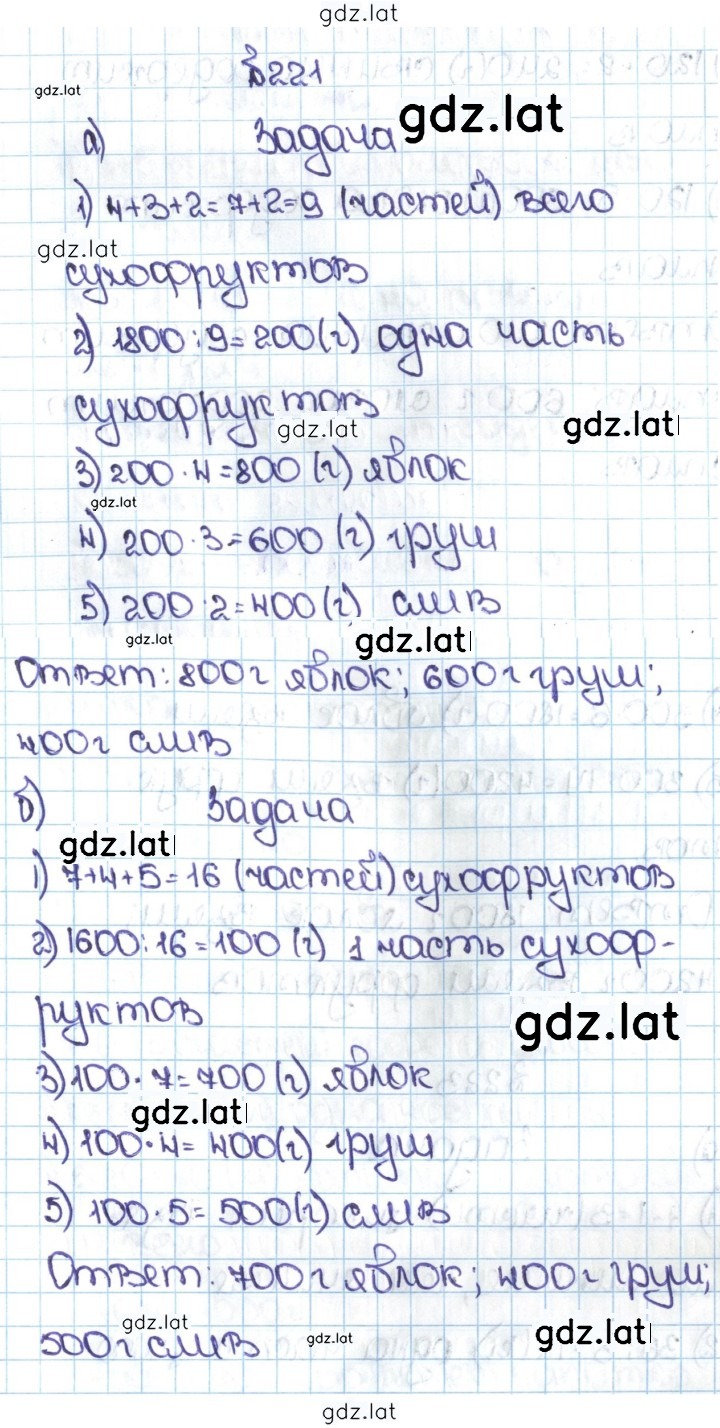 gdz.lat
№221
gdz.lat
а) Задача gdz.lat
1) 4+3+2=7+2=9 (частей) всего
gdz.lat
сухофруктов
2) 1800:9=200(г) одна часть
сухофруктов
gdz.lat gdz.lat
3) 200·4=800 (г) яблок
gdz.lat
4) 200·3=600 (г) груш
5) 200·2=400(г) слив
gdz.lat gdz.lat
Ответ: 800г яблок; 600г груш;
400г слив
б) Задача
gdz.lat
1) 7+4+5=16 (частей) сухофруктов
2) 1600:16=100 (г) 1 часть сухоф-
руктов
gdz.lat
3) 100·7=700 (г) яблок
gdz.lat
4) 100·4=400(г) груш
5) 100·5=500(г) слив
Ответ: 700г яблок; 400г груш;
gdz.lat gdz.lat gdz.lat
500г слив
gdz.lat